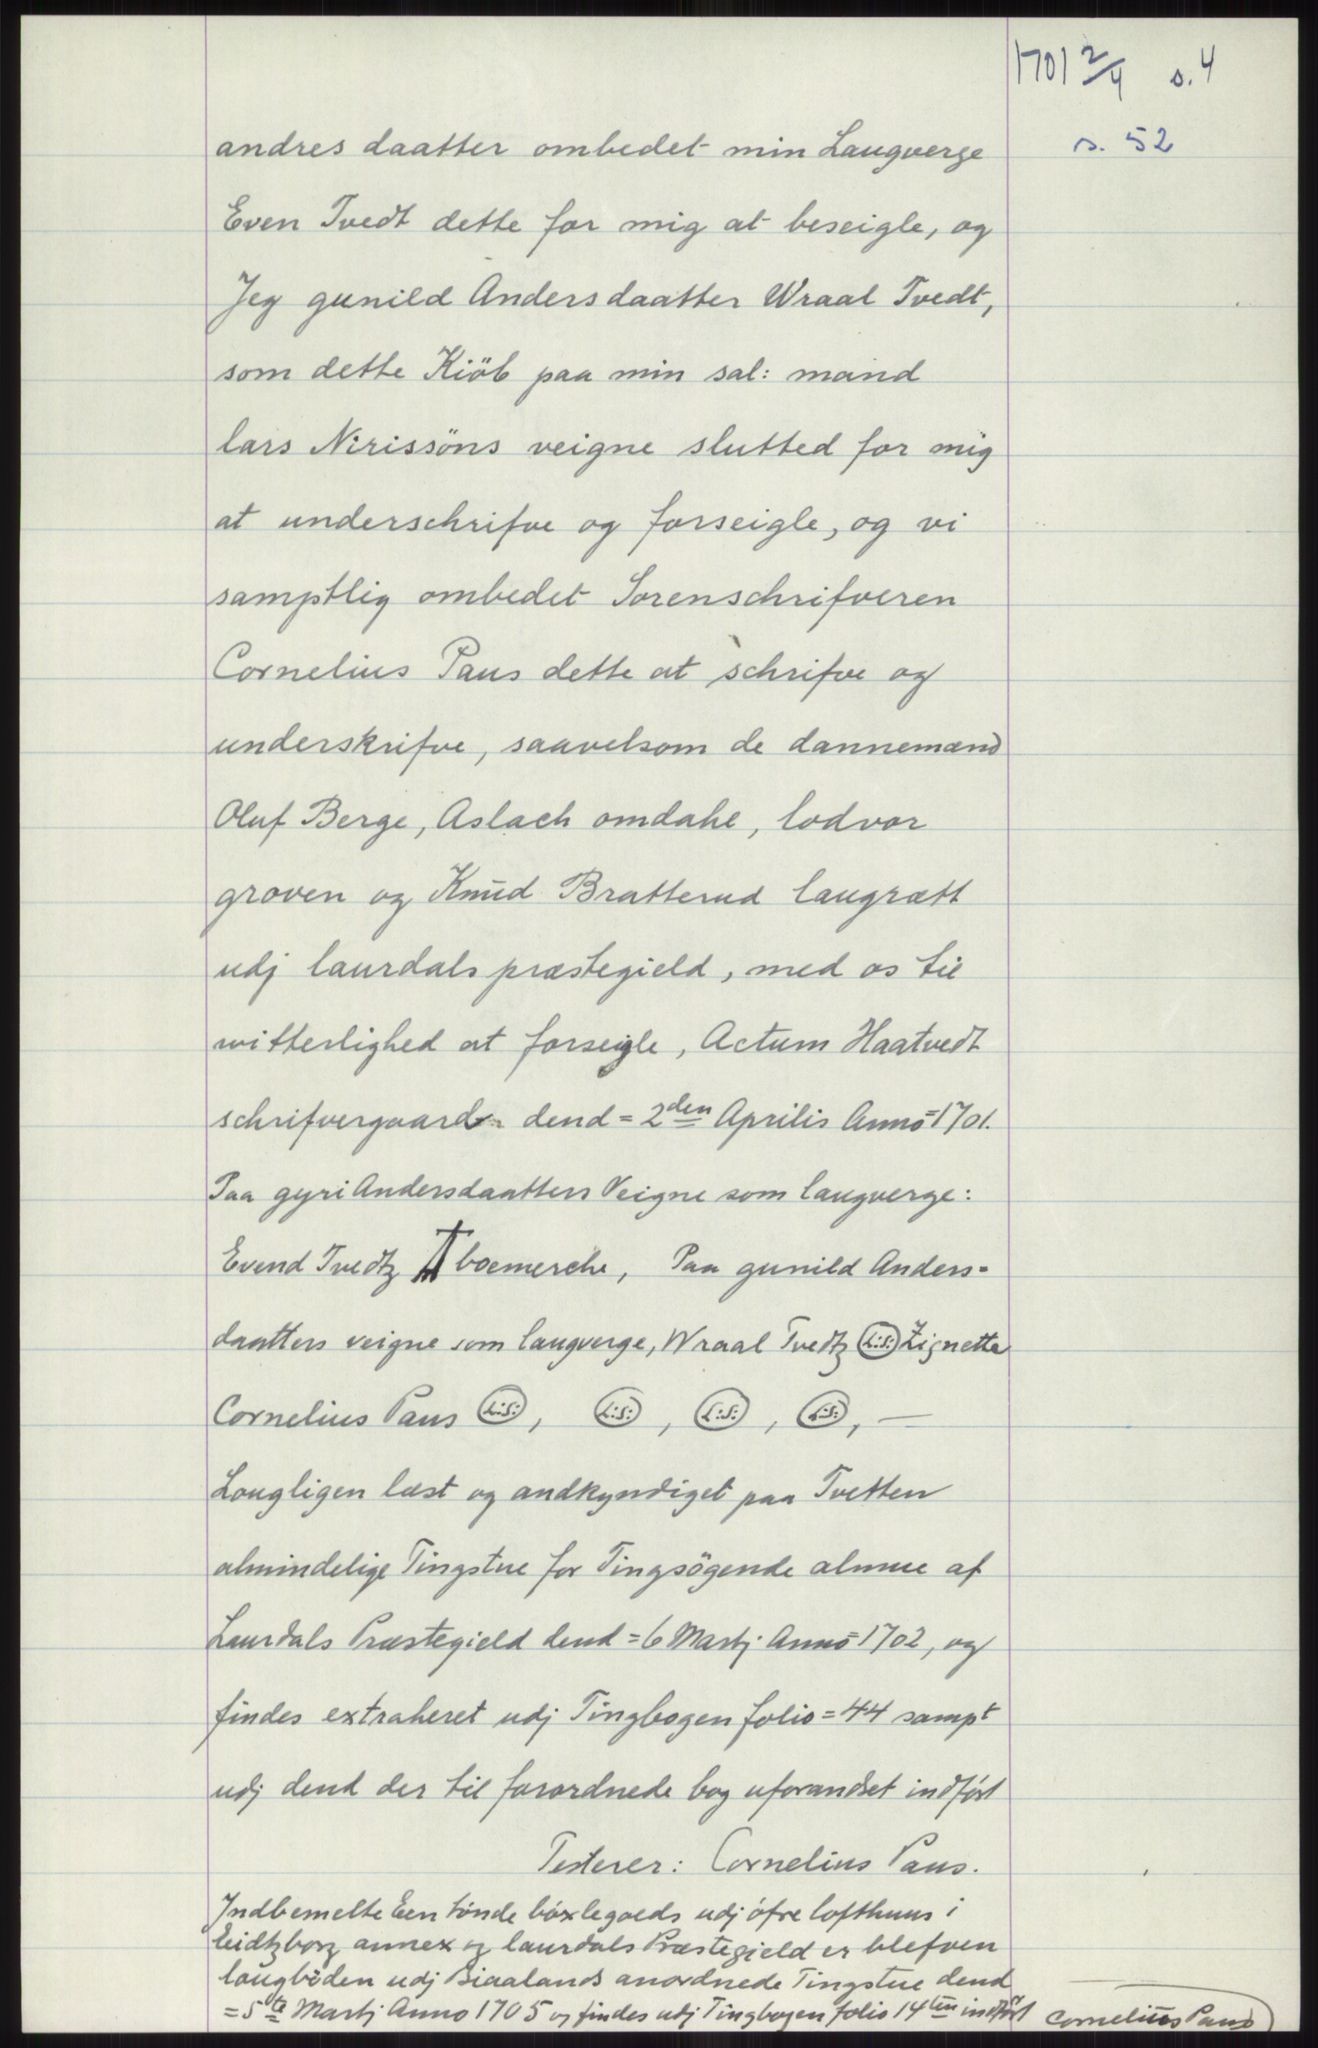 1701 2/4 s. 4
s. 52
andres daatter ombedet min Laugverge
Even Tvedt dette for mig at beseigle, og
Jeg gunild Andersdaatter Wraal Tvedt,
som dette Kiöb paa min sal: mand
lars Nirissöns veigne slutted for mig
at underschrifve og forseigle, og vi
samptlig ombedet Sorenschrifveren
Cornelius Paus dette at schrifve og
underskrifve, saavelsom de dannemænd
Oluf Berge, Aslach omdahl, lodvor
groven og Knud Bratterud laugrætt
udj laurdals præstegield, med os til
witterlighed at forseigle, Actum Haatvedt
schrifvergaard dend = 2den Aprilis Anno = 1701.
Paa gyri Andersdaatters Veigne som laugverge:
Evend Tvedtz boemerche, Paa gunild Anders-
daatters veigne som laugverge, Wraal Tvedtz L:S: Zignette
Cornelius Paus L:S:, L:S:, L:S:, L:S:, —
Lougligen læst og andkyndiget paa Tvetten
almindelige Tingstue for Tingsögende almue af
Laurdals Præstegield dend = 6 Martj Anno = 1702, og
findes extraheret udj Tingbogen folio = 44 sampt
udj dend der til forordnede bog uforandret indført
Testerer: Cornelius Paus.
Indbemelte Een tönde böxlegoeds udj öfre lofthuus i
Eidtzborg annex og laurdals Præstegield er blefven
laugböden udj Biaalands anordnede Tingstue dend
= 5te Martj Anno 1705 og findes udj Tingbogen folio 14ten indført
Cornelius Paus